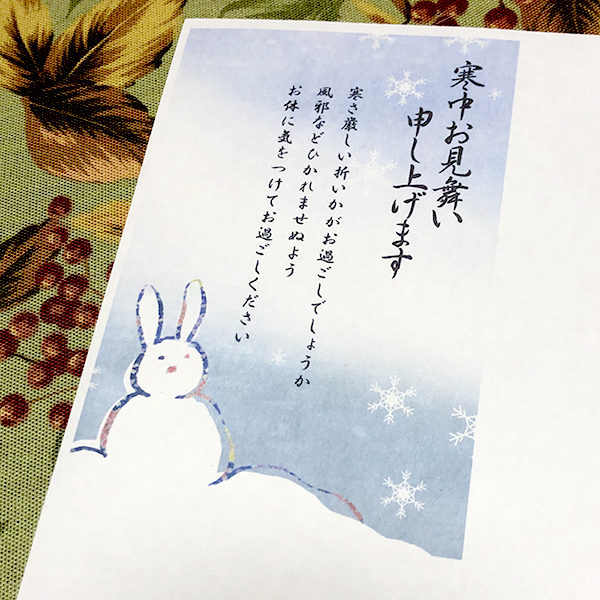 寒中お見舞い
申し上げます
寒さ厳しい折いかがお過ごしでしょうか
風邪などひかれませぬよう
お体に気をつけてお過ごしください